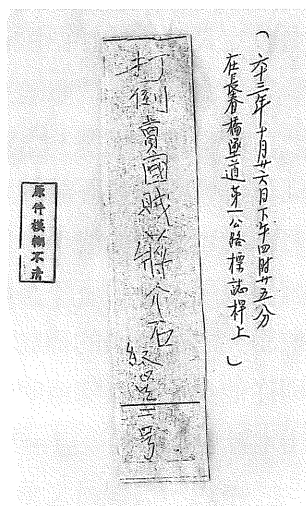 「六十三年十月廿六日下午四時廿五分
在長春橋道第一公路標誌桿上」
打倒賣國賊蔣介石
二号
原件模糊不清